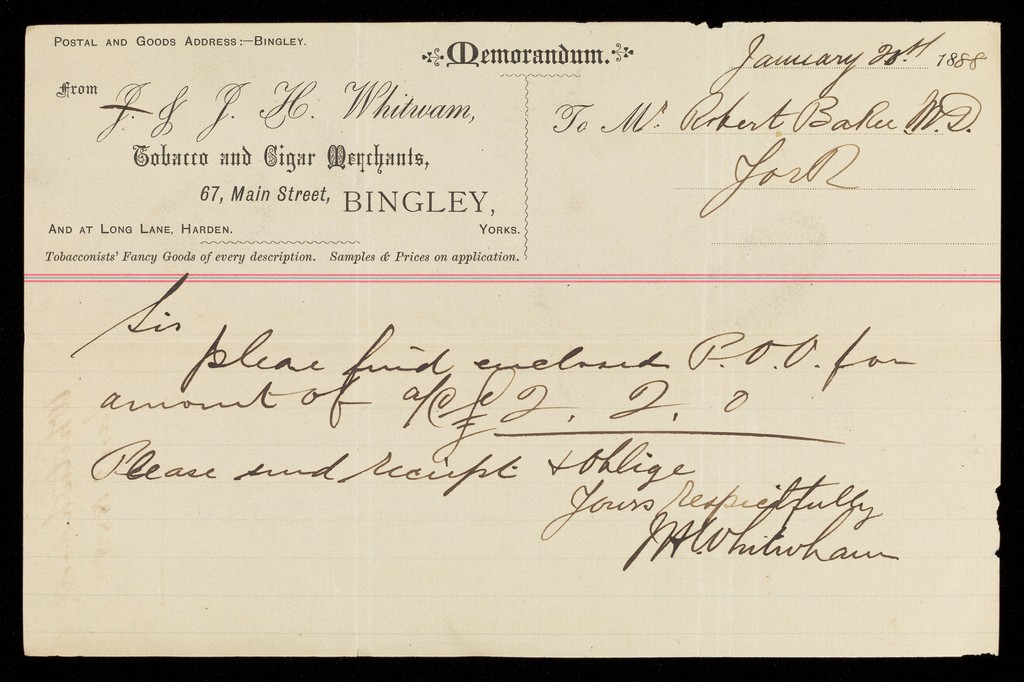 Postal and Goods Address:—Bingley.
Memorandum.
January 20th 1888
From J. & J. H. Whitwam,
To Mr. Robert Baker M.D.
Tobacco and Cigar Merchants,
York
67, Main Street, BINGLEY,
And at Long Lane, Harden. Yorks.
Tobacconists' Fancy Goods of every description. Samples & Prices on application.
Sir
please find enclosed P.O.O. for
amount of a/c £2. 2. 0
Please send reciept & Oblige
Yours Respectfully
JH Whitwham